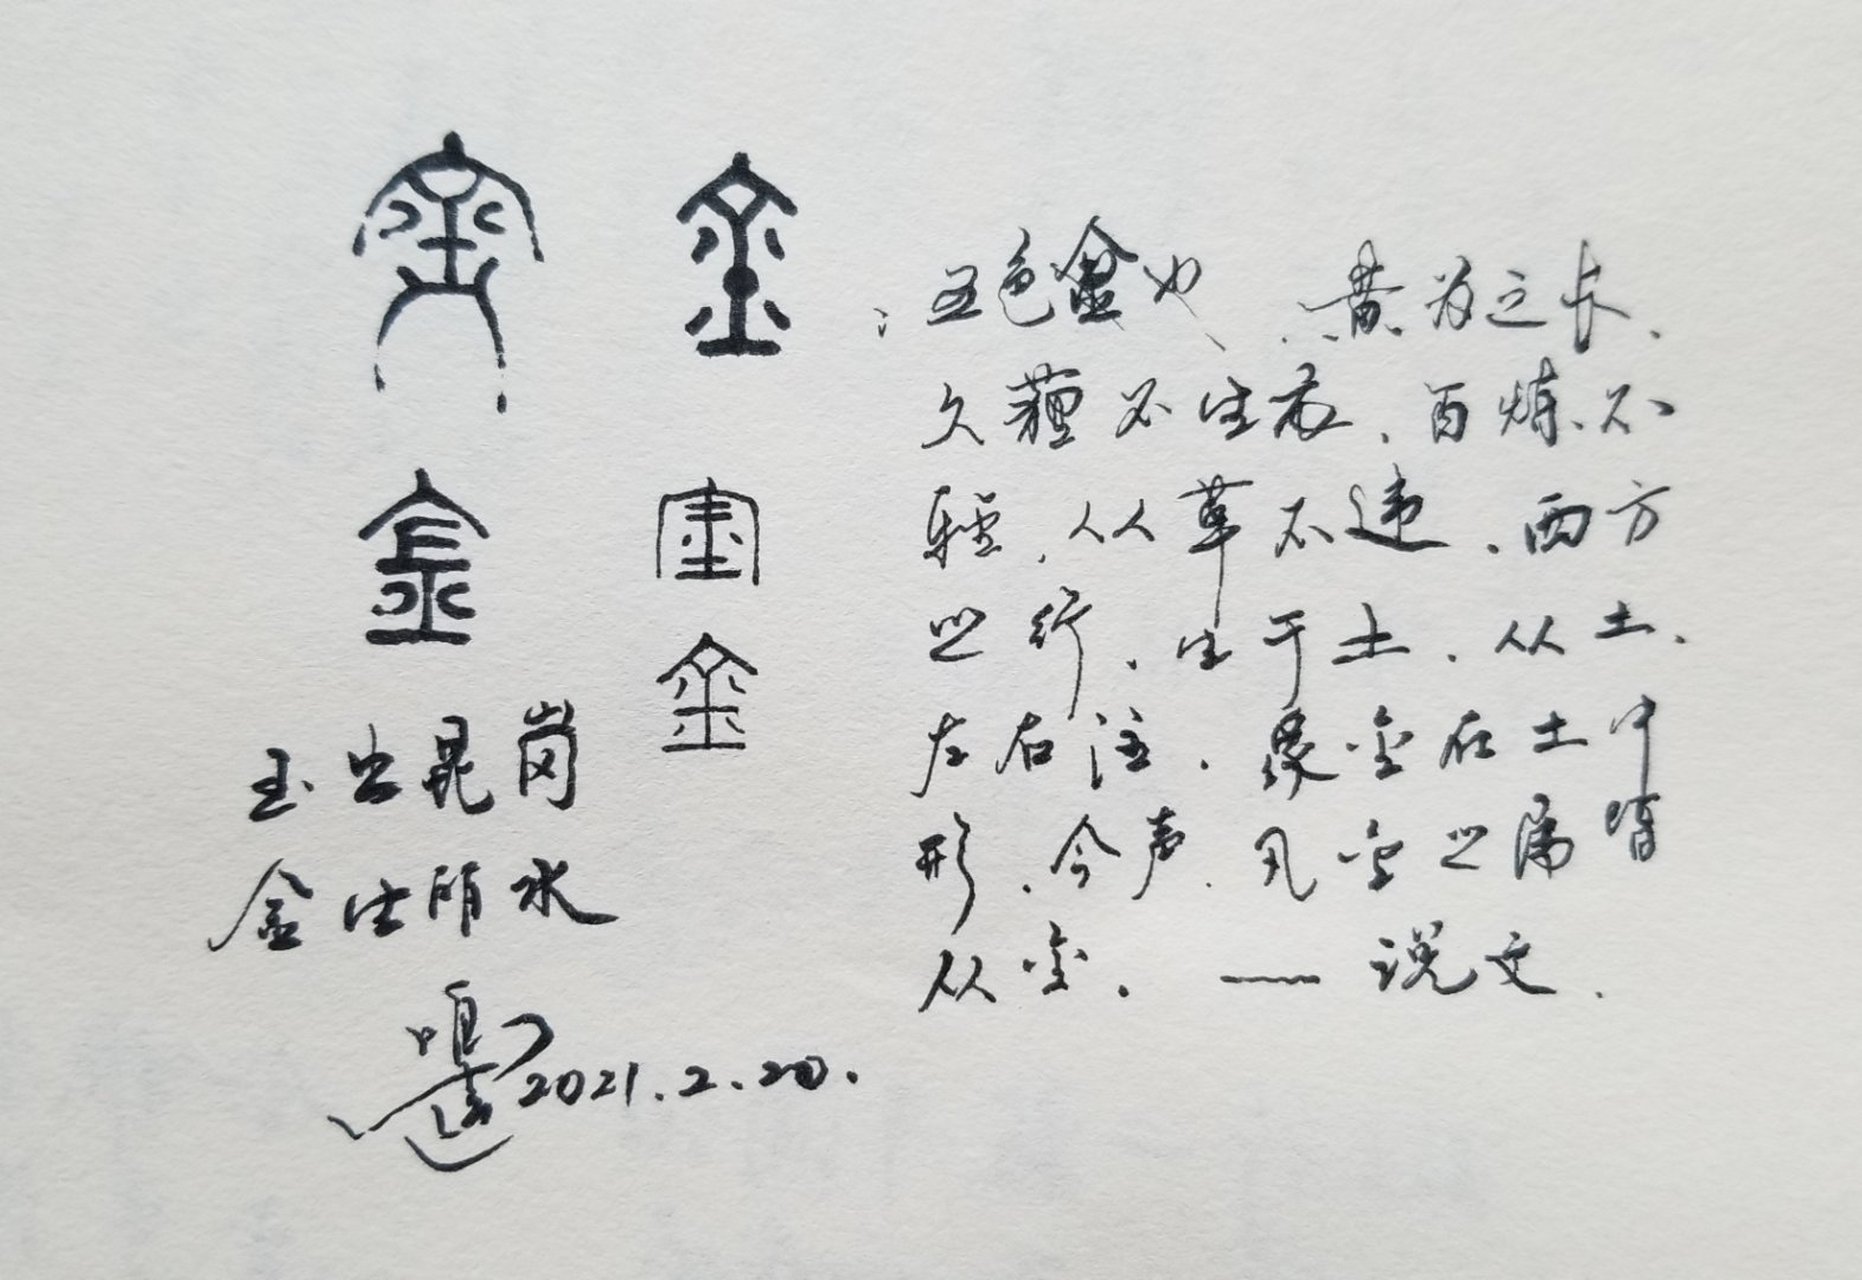 金 金
金 金
金
玉出昆岗
金生丽水
2021.2.20.
五色金也、黄为之长.
久薶不生衣、百炼不
轻、从革不违、西方
之行、生于土、从土、
左右注、象金在土中
形、今声、凡金之属皆
从金. — 说文.